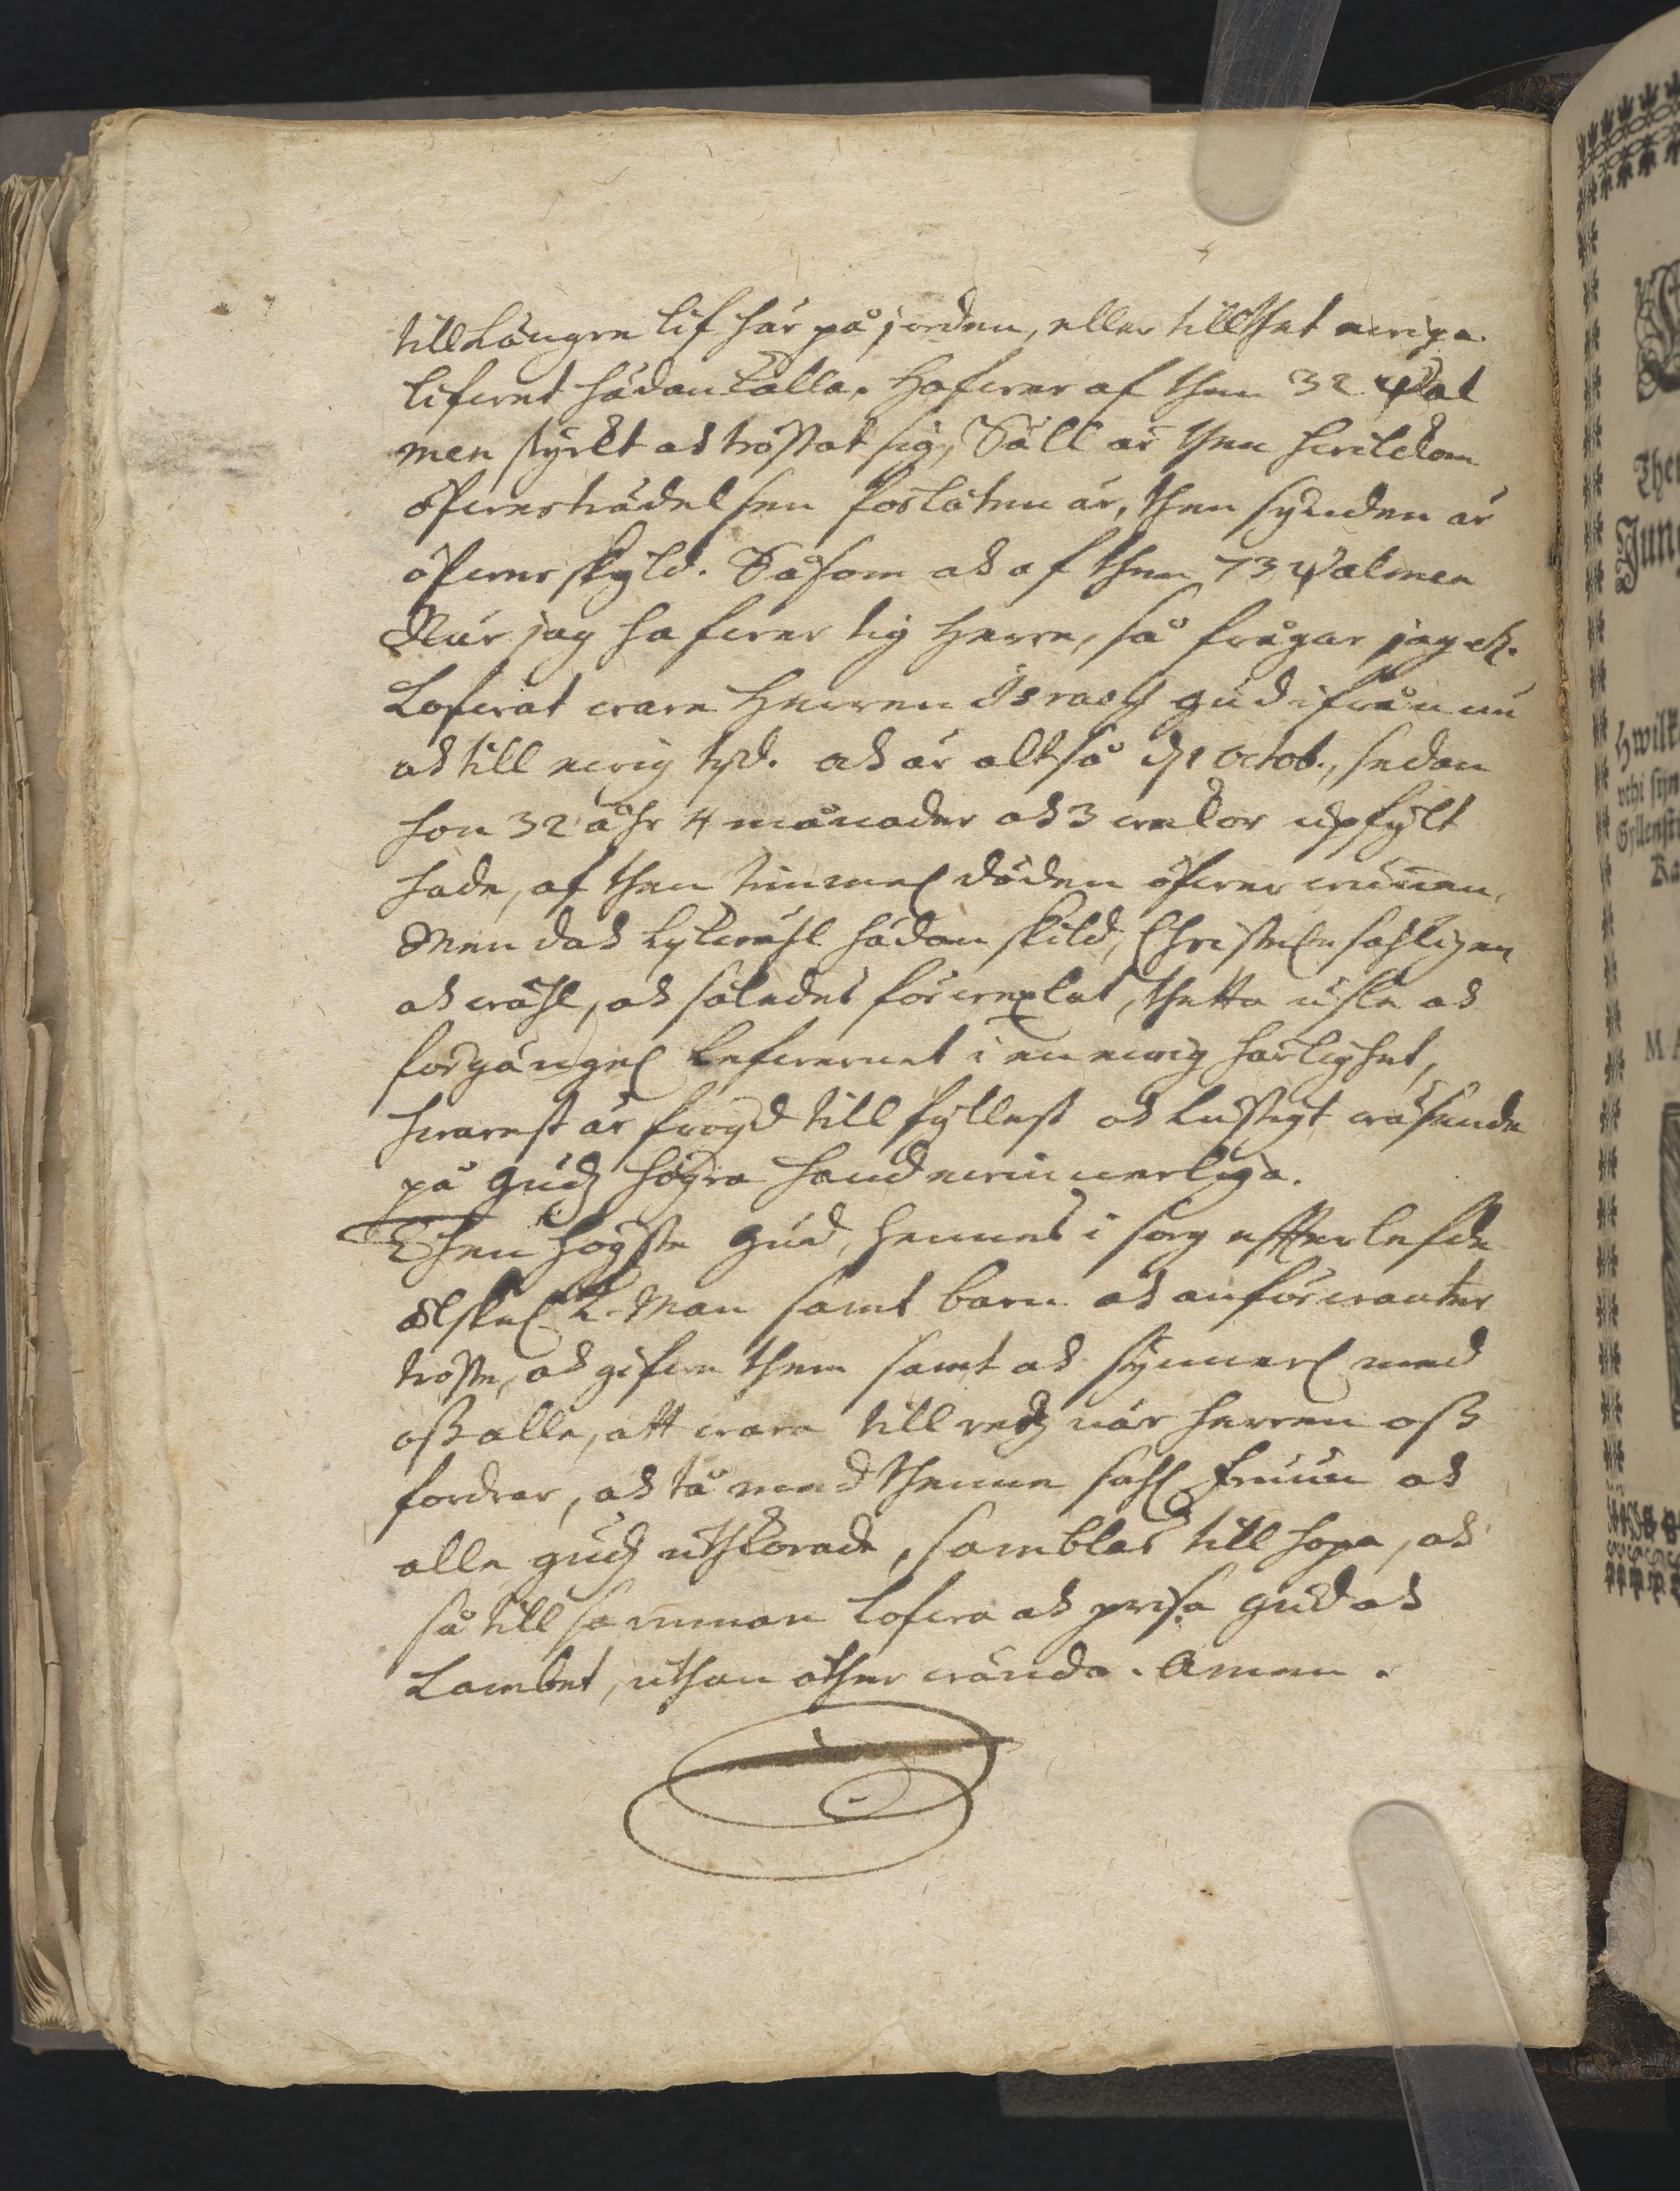 till Längre lif här på jorden, eller till thet ewiga
lifwet hädan kalla. Hafwer af then 32 ψal
men styrkt och tröstat sig, Säll är then hwilckom
öfwerträdelsen förlåten är, then synden är
öfwerskyld. Såsom och af then 73 ψalmen
När jag hafwer tig Herre, så frågar jag etc.
Lofwat ware Herren Israels gud ifrån nu
och till ewig tijd. och är altså d. 1 Octob., sedan
hon 32 åhr 4 månader och 3 wekor upfylt
hade, af then timmel döden öfwerwunnen,
Men dock lykwähl hädan skild, Christel. sahligen
och wähl, och således förwexlat, thetta usle och
förgängel. Lefwernet i en ewig härlighet,
hwarest är frögd till fyllest och lustigt wäsende
på gudz högra hand ewinnerliga.
Then högste Gud, hennes i sorg effterlefde
älskel. k. Man samt barn och anförwanter
tröste, och gifwe them samt och synnerl. med
oss alle, att wara till redz när herren oss
fordrar, och tå med thenne sahl. fruun och
alle gudz uthkorade, samblas till hopa, och
så till samman lofwa och prisa gud och
Lambet, uthan åther wända. Amen.
Ther
Jung
Hwilk
Gyllenst
Ra